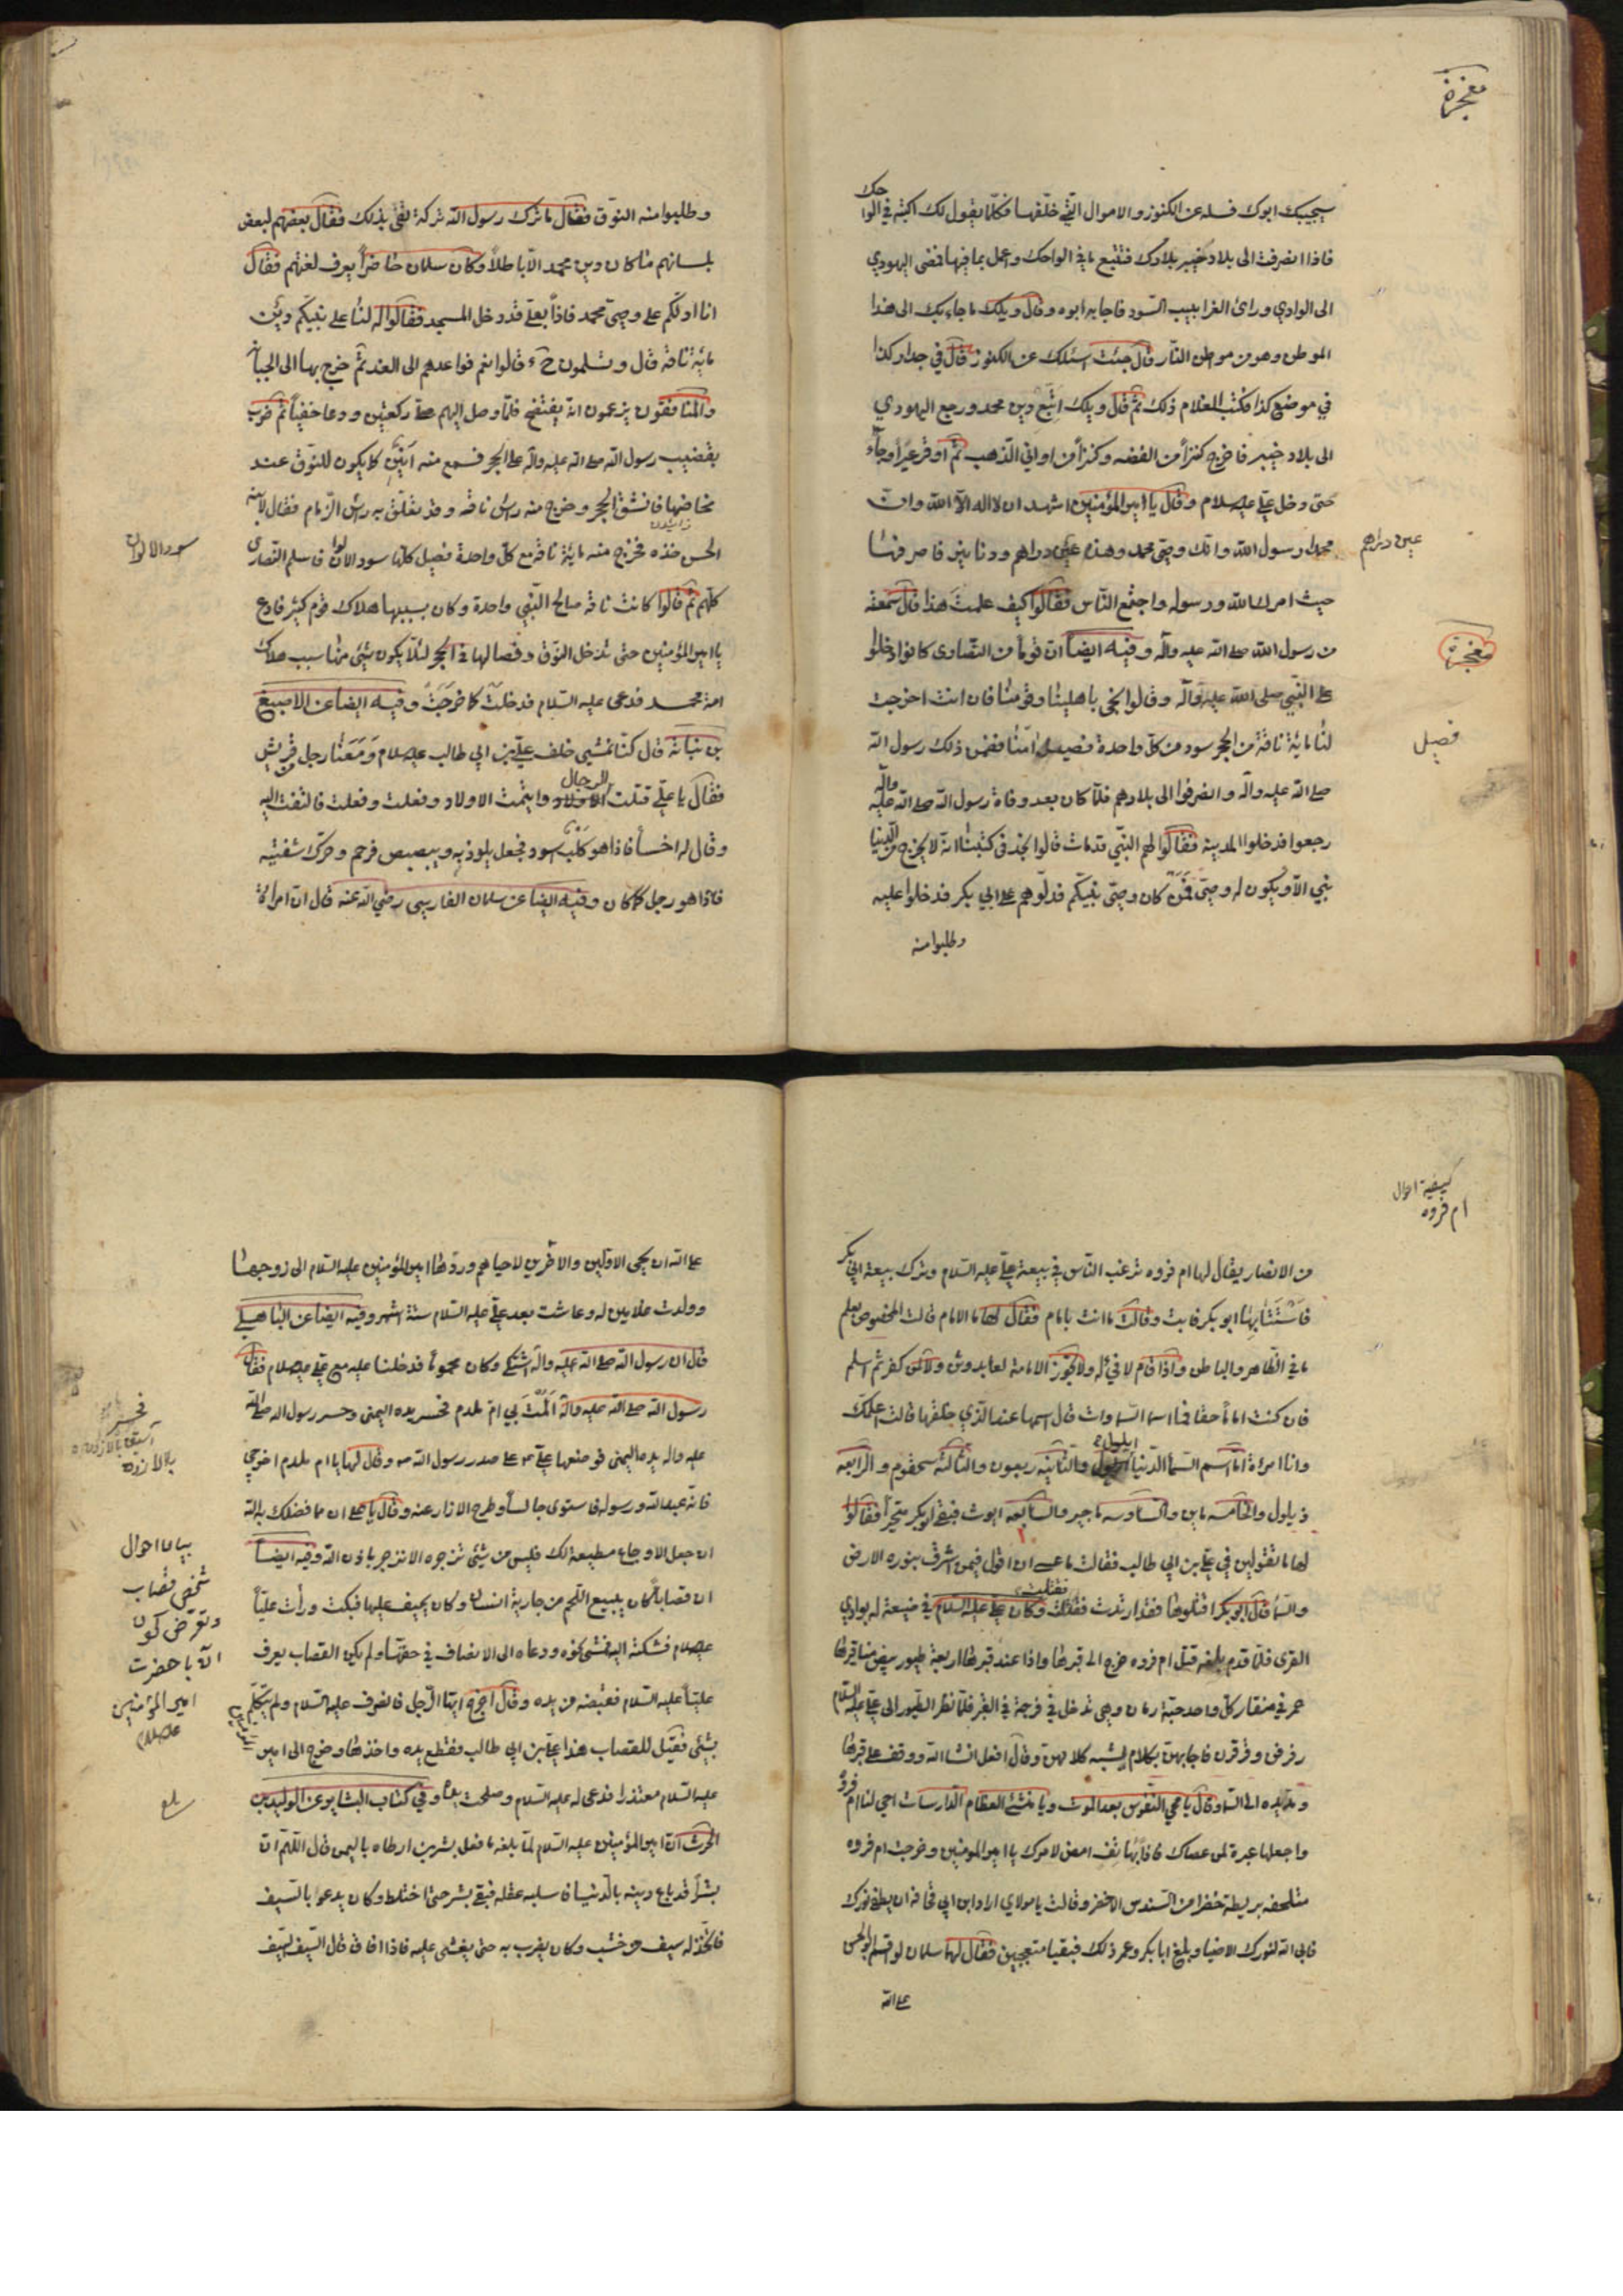 معجزة
يجيبك ابوك فسله عن الكنوز والاموال التي خلفها فكلما يقول لك اكتبه في الواحك
فاذا انصرفت الى بلاد خيبر بلادك فتتبع ما في الواحك واعمل بما فيها فمضى اليهودي
الى الوادي وراى الغرابيب السود فاجابه ابوه وقال ويلك ما جاء بك الى هذا
الموطن وهو من مواطن النار قال جئت اسئلك عن الكنوز قال في جدار كذا
في موضع كذا فكتب الغلام ذلك ثم قال ويلك اتبع دين محمد ورجع اليهودي
الى بلاد خيبر فاخرج كنزاً من الفضه وكنزاً من اواني الذهب ثم اوقر عيراً وجاء
حتى دخل على علي عليه السلام وقال يا امير المؤمنين اشهد ان لا اله الا الله وان
محمدا رسول الله وانك وصي محمد وهذه عير دراهم ودنانير فاصرفها
عير دراهم
حيث امرك الله ورسوله واجتمع الناس فقالوا كيف علمت هذا قال سمعته
من رسول الله صلى الله عليه وآله وفيه ايضاً ان قوماً من النصارى كانوا دخلوا
معجزة
على النبي صلى الله عليه وآله وقالوا نجي باهلينا وقومنا فان انت اخرجت
لنا مائة ناقة من الحجر سود من كل واحدة فصيل امنا فضمن ذلك رسول الله
فصيل
صلى الله عليه وآله وانصرفوا الى بلادهم فلما كان بعد وفاة رسول الله صلى الله عليه وآله
رجعوا فدخلوا المدينة فقالوا لهم النبي قد مات قالوا نجد في كتبنا انه لا يخرج من الدنيا
نبي الا ويكون له وصي فمن كان وصي نبيكم فدلوهم على ابي بكر فدخلوا عليه
وطلبوا منه
وطلبوا منه النوق فقال ما ترك رسول الله تركة تفي بذلك فقال بعضهم لبعض
بلسانهم ما كان دين محمد الا باطلاً وكان سلمان حاضراً يعرف لغتهم فقال
انا ادلكم على وصي محمد فاذاً بعلي قد دخل المسجد فقالوا له لنا على نبيكم دين
مائة ناقة قال وتسلمون ح قالوا نعم فواعدهم الى الغد ثم خرج بها الى الجبانة
والمنافقون يزعمون انه يفتضح فلما وصل اليهم صلى ركعتين ودعا خفياً ثم ضرب
بقضيب رسول الله صلى الله عليه وآله على الحجر فسمع منه انين كما يكون للنوق عند
مخاضها فانشق الحجر وخرج منه راس ناقة وقد تعلق به راس الزمام فقال لابنه
الحسن خذه فخرج منه مائة ناقة مع كل واحدة فصيل كلها سود الالوان فاسلم النصارى
سود الالوان
كلهم ثم قالوا كانت ناقة صالح النبي واحدة وكان بسببها هلاك قوم كثير فادع
يا امير المؤمنين حتى تدخل النوق وفصالها في الحجر لئلا يكون شيئ منها سبب هلاك
امة محمد فدعى عليه السلام فدخلت كما خرجت وفيه ايضا عن الاصبغ
بن نباتة قال كنا نمشي خلف علي بن ابي طالب عليه السلام ومعنا رجل من قريش
فقال يا علي قتلت الرجال وايتمت الاولاد وفعلت وفعلت فالتفت اليه
وقال له اخسأ فاذا هو كلب اسود فجعل يلوذ به ويبصبص فرحم وحرك شفتيه
فاذا هو رجل كما كان وفيه ايضا عن سلمان الفارسي رضي الله عنه قال ان امراة
كيفية احوال
ام فروه
من الانصار يقال لها ام فروه ترغب الناس في بيعة علي عليه السلام وترك بيعة ابي بكر
فاستتابها ابو بكر فابت وقالت ما انت بامام فقال لها ما الامام قالت المخصوص يعلم
ما في الظاهر والباطن واذا قام لا فيء له ولا تجوز الامامة لعابد وثن ولا لمن كفر ثم اسلم
فان كنت اماما حقا فما اسماء السماوات قال اسمها عند الذي خلقها قالت اعلمك
وانا امراة اما اسم السماء الدنيا ايلول والثانية ربعون والثالثة سحقوم والرابعه
ذيلول والخامسه ماين والسادسه ماجير والسابعه ايوث فبقي ابو بكر متحيراً فقالوا
لها ما تقولين في علي بن ابي طالب فقالت ما عسى ان اقول فيمن اشرقت بنوره الارض
والسماء قال ابو بكر اقتلوها فقد ارتدت فقتلت وكان علي عليه السلام في ضيعة له بوادي
القرى فلما قدم بلغه قتل ام فروه خرج الى قبرها واذا عند قبرها اربعة طيور بيض مناقيرها
حمر في منقار كل واحد حبة رمان وهي تدخل في فرجة في القبر فلما نظر الطيور الى علي عليه السلام
رفرفن وقرقرن فاجابهن بكلام يشبه كلامهن وقال افعل انشا الله ووقف على قبرها
ومد يده الى السماء وقال يا محيي النفوس بعد الموت ويا منشئ العظام الدارسات احي لنا ام فروه
واجعلها عبرة لمن عصاك فاذا بهاتف امض لامرك يا امير المؤمنين وخرجت ام فروه
متلحفه بريطة خضرا من السندس الاخضر وقالت يا مولاي اراد ابن ابي قحافة ان يطفي نورك
فابى الله لنورك الا ضيا وبلغ ابا بكر وعمر ذلك فبقيا متعجبين فقال لهما سلمان لو اقسم ابو الحسن
على الله
على الله ان يحيي الاولين والاخرين لاحياهم وردها امير المؤمنين عليه السلام الى زوجها
وولدت غلامين له وعاشت بعد علي عليه السلام ستة اشهر وفيه ايضا عن الباهلي
قال ان رسول الله صلى الله عليه وآله اشتكى وكان محموماً فدخلنا عليه مع علي عليه السلام فقال
رسول الله صلى الله عليه وآله المت بي ام ملدم فحسر يده اليمنى وحسر رسول الله صلى الله
عليه واله يده اليمنى فوضعها علي على صدر رسول الله وقال لها يا ام ملدم اخرجي
فانه عبد الله ورسوله فاستوى جالساً وطرح الازار عنه وقال يا علي ان مما فضلك به الله
ان جعل الاوجاع مطيعة لك فليس من شيئ تزجره الا انزجر باذن الله وفيه ايضاً
ان قصاباً كان يبيع اللحم من جارية انسان وكان يحيف عليها فبكت ورأت علياً
عليه السلام فشكته اليه فمشى نحوه ودعاه الى الانصاف في حقها ولم يكن القصاب يعرف
علياً عليه السلام فقبضه من يده وقال اخرج ايها الرجل فانصرف عليه السلام ولم يتكلم
بشيئ فقيل للقصاب هذا علي بن ابي طالب فقطع يده واخذها وخرج الى امير
عليه السلام معتذرا فدعى له عليه السلام وصلحت يده وفي كتاب البشاير عن الوليد بن
الحرث ان امير المؤمنين عليه السلام لما بلغه ما فعل بشر بن ارطاه باليمن قال اللهم ان
بشراً قد باع دينه بالدنيا فاسلبه عقله فبقي بشر حتى اختلط وكان يدعو بالسيف
فاتخذ له سيف من خشب وكان يضرب به حتى يغشى عليه فاذا افاق قال السيف السيف
فحسر
بالازده
بيان احوال
شخص قصاب
وتعرض كون
آن با حضرت
امير المؤمنين